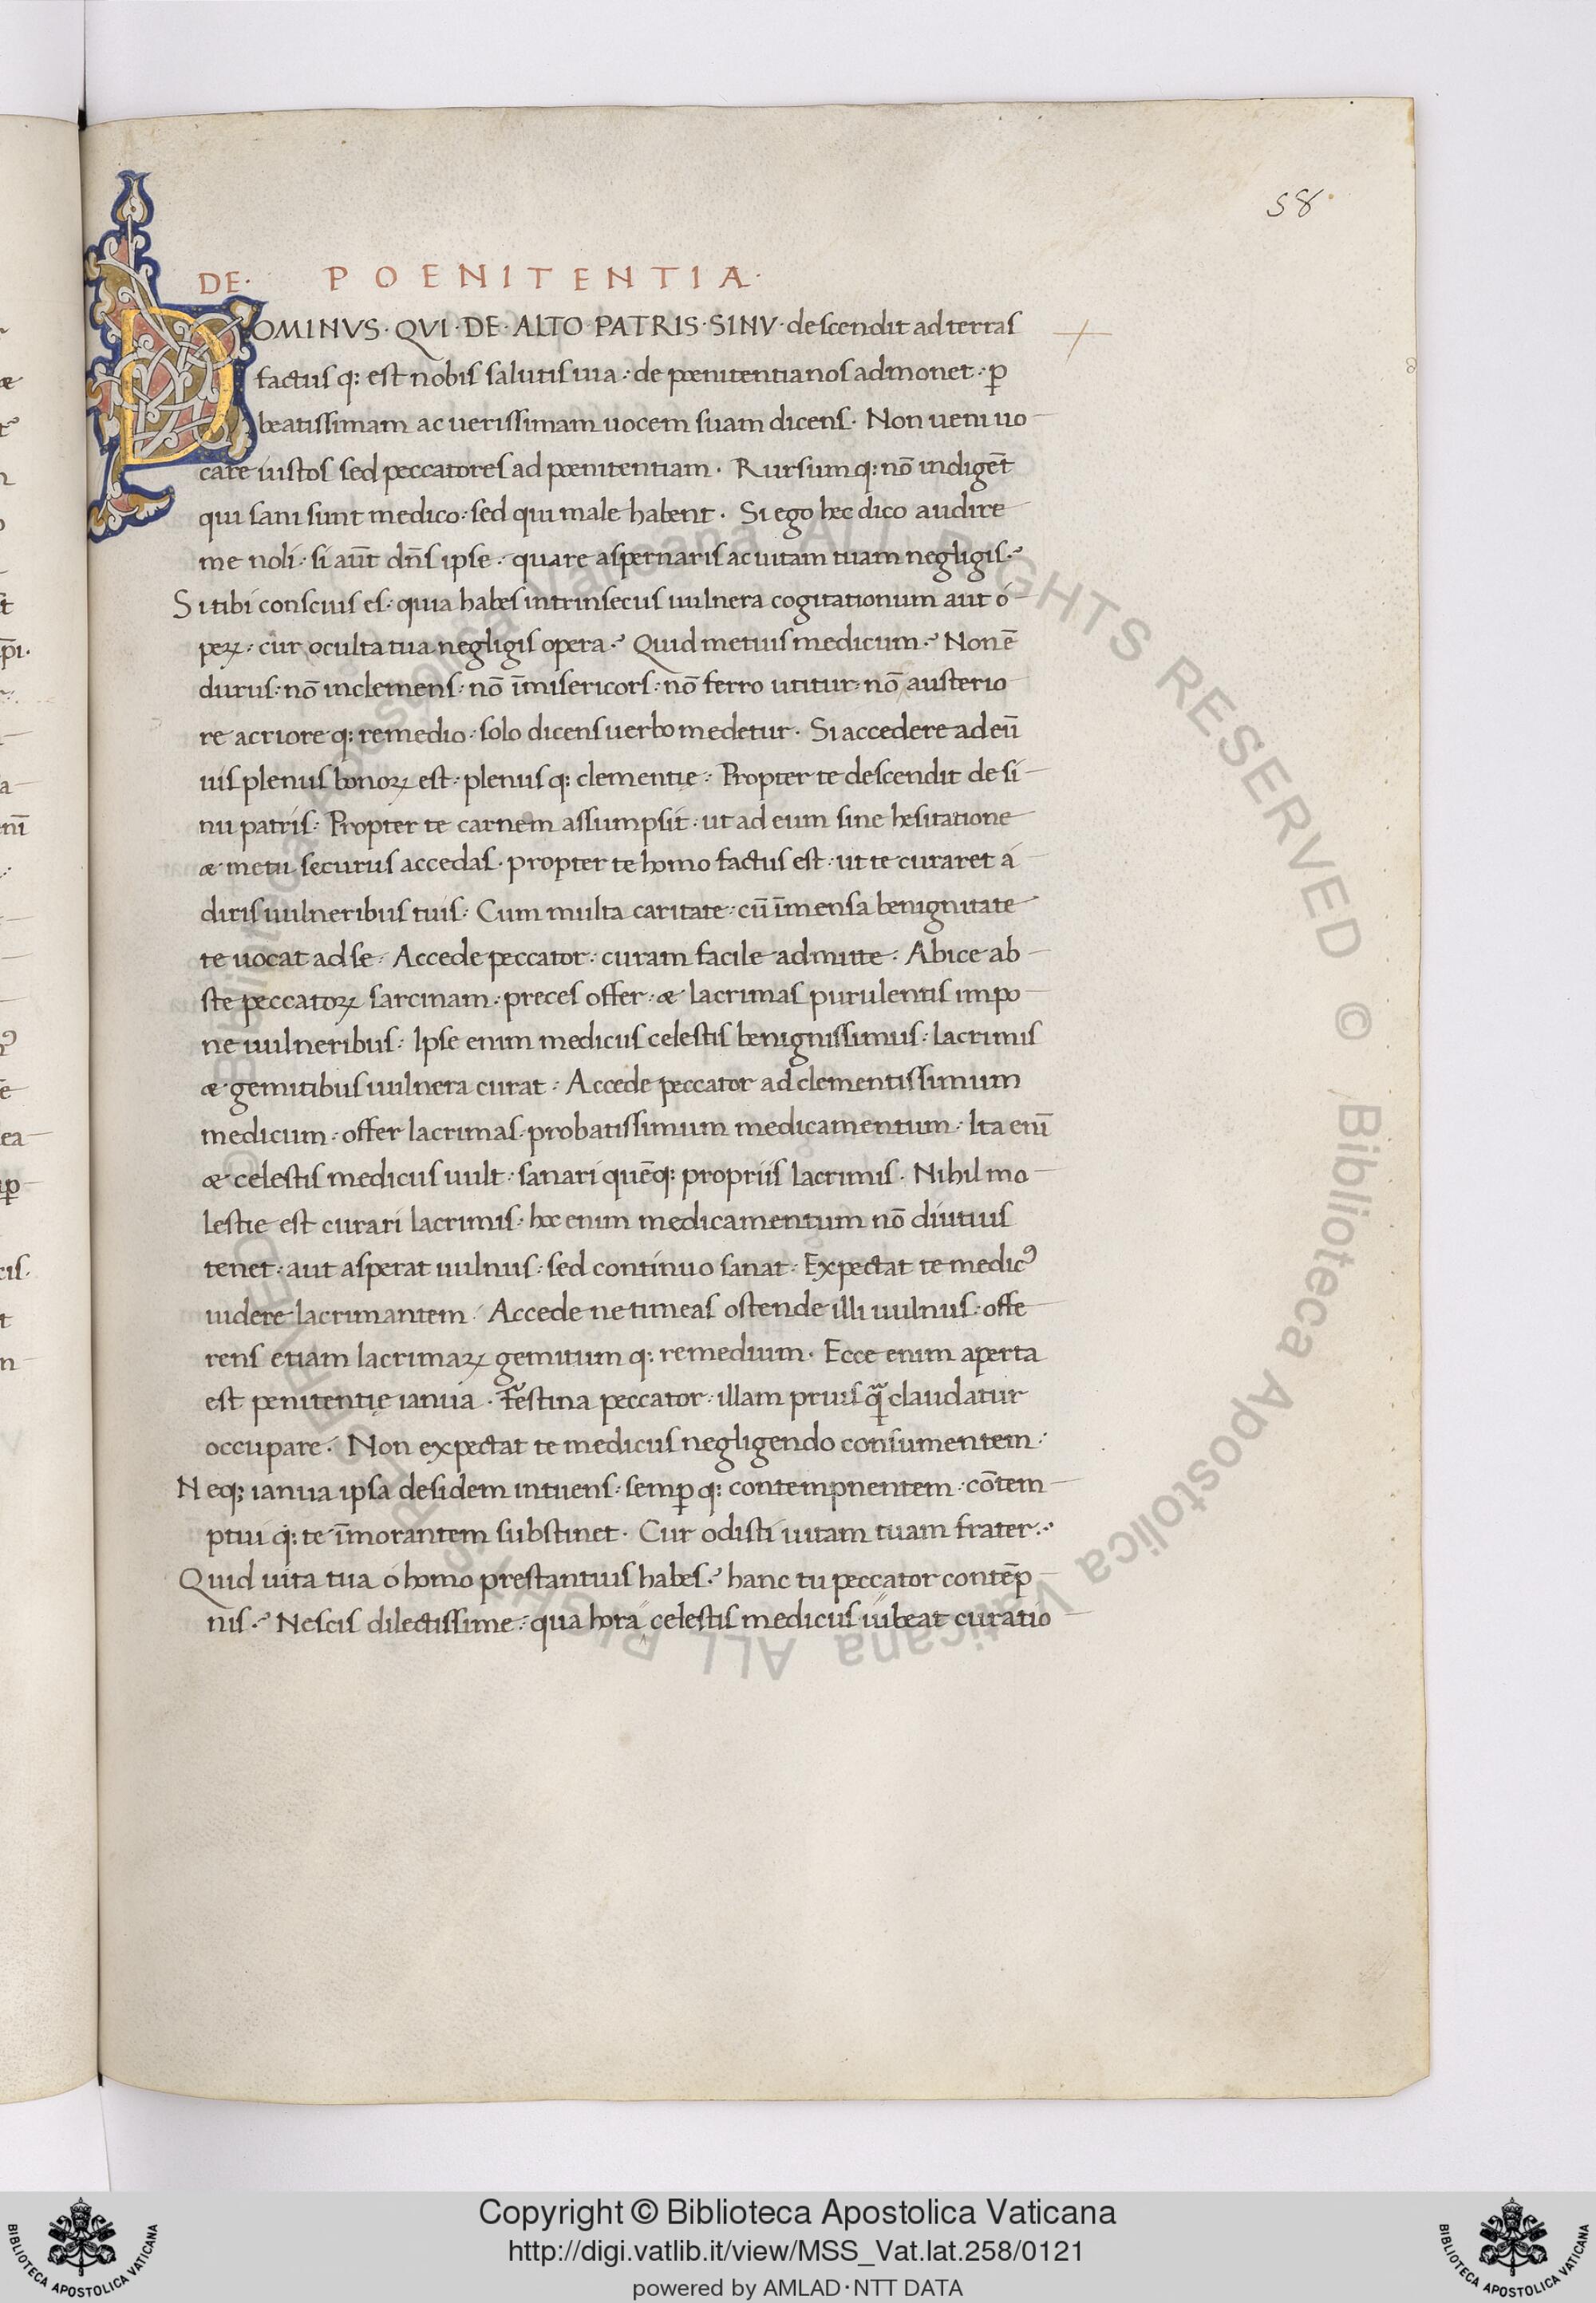 58.
DE. POENITENTIA.
DOMINVS·QVI·DE·ALTO·PATRIS·SINV·descendit ad terras
factus q: est nobis salutis uia: de poenitentia nos admonet: ꝑ
beatissimam ac uerissimam uocem suam dicens. Non ueni uo
care iustos sed peccatores ad poenitentiam. Rursum q: nō indigēt
qui sani sunt medico: sed qui male habent. Si ego hec dico audire
me noli: si aūt dn̄s ipse: quare aspernaris ac uitam tuam negligis?
Si tibi conscius es: quia habes intrinsecus uulnera cogitationum aut o
peꝝ: cur oculta tua negligis opera? Quid metuis medicum? Non ē
durus: nō inclemens: nō īmisericors: nō ferro utitur: nō austerio
re acriore q: remedio: solo dicens uerbo medetur. Si accedere ad eū
uis plenus bonoꝝ est: plenus q: clementię: Propter te descendit de si
nu patris: Propter te carnem assumpsit: ut ad eum sine hesitatione
æ metu securus accedas. propter te homo factus est: ut te curaret a
diris uulneribus tuis: Cum multa caritate: cū īmensa benignitate
te uocat ad se: Accede peccator: curam facile admitte: Abice abs
ste peccatoꝝ sarcinam: preces offer: æ lacrimas purulentis impo
ne uulneribus: Ipse enim medicus celestis benignissimus: lacrimis
æ gemitibus uulnera curat: Accede peccator ad clementissimum
medicum: offer lacrimas: probatissimum medicamentum: Ita enī
æ celestis medicus uult: sanari quēq: propriis lacrimis. Nihil mo
lestie est curari lacrimis: hoc enim medicamentum nō diutius
tenet: aut asperat uulnus: sed continuo sanat: Expectat te medicꝰ
uidere lacrimantem: Accede ne timeas ostende illi uulnus: offe
rens etiam lacrimaꝝ gemitum q: remedium. Ecce enim aperta
est penitentię ianua. Festina peccator: illam prius q̄ claudatur
occupare: Non expectat te medicus negligendo consumentem:
Neq; ianua ipsa desidem intuens: semꝑ q: contempnentem: cōtem
ptui q: te īmorantem substinet. Cur odisti uitam tuam frater:
Quid uita tua o homo prestantius habes? hanc tu peccator contēp
nis? Nescis dilectissime: qua hora celestis medicus iubeat curatio
© Biblioteca Apostolica Vaticana ALL RIGHTS RESERVED © Biblioteca Apostolica Vaticana ALL RIGHTS RESERVED
Copyright © Biblioteca Apostolica Vaticana
http://digi.vatlib.it/view/MSS_Vat.lat.258/0121
powered by AMLAD·NTT DATA
BIBLIOTECA APOSTOLICA VATICANA
BIBLIOTECA APOSTOLICA VATICANA